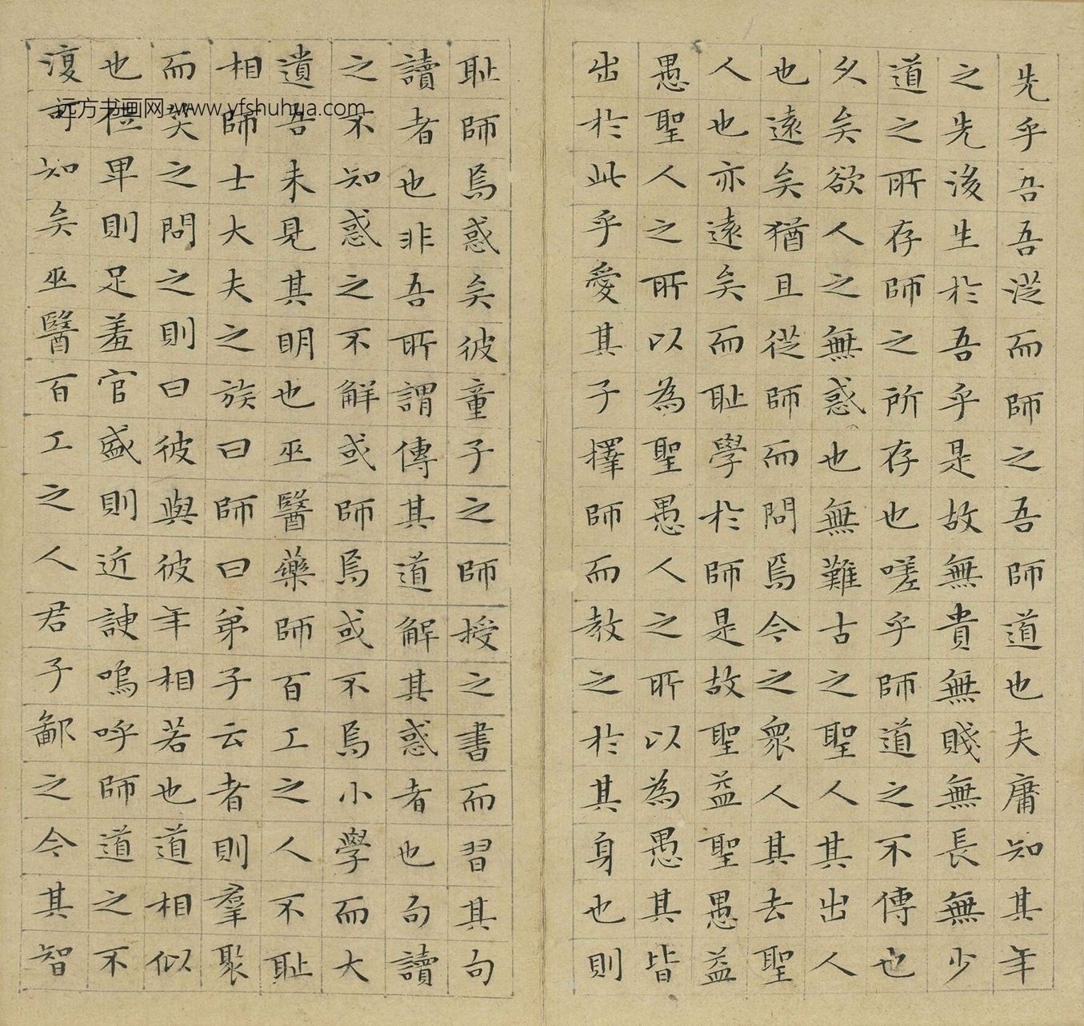 先乎吾吾從而師之吾師道也夫庸知其年
之先後生於吾乎是故無貴無賤無長無少
道之所存師之所存也嗟乎師道之不傳也
久矣欲人之無惑也無難古之聖人其出人
也遠矣猶且從師而問焉今之衆人其去聖
人也亦遠矣而耻學於師是故聖益聖愚益
愚聖人之所以為聖愚人之所以為愚其皆
出於此乎愛其子擇師而教之於其身也則
耻師焉惑矣彼童子之師授之書而習其句
讀者也非吾所謂傳其道解其惑者也句讀
之不知惑之不解或師焉或不焉小學而大
遺吾未見其明也巫醫藥師百工之人不耻
相師士大夫之族曰師曰弟子云者則羣聚
而笑之問之則曰彼與彼年相若也道相似
也位卑則足羞官盛則近諛嗚呼師道之不
復可知矣巫醫百工之人君子鄙之今其智
远方书画网-www.yfshuhua.com